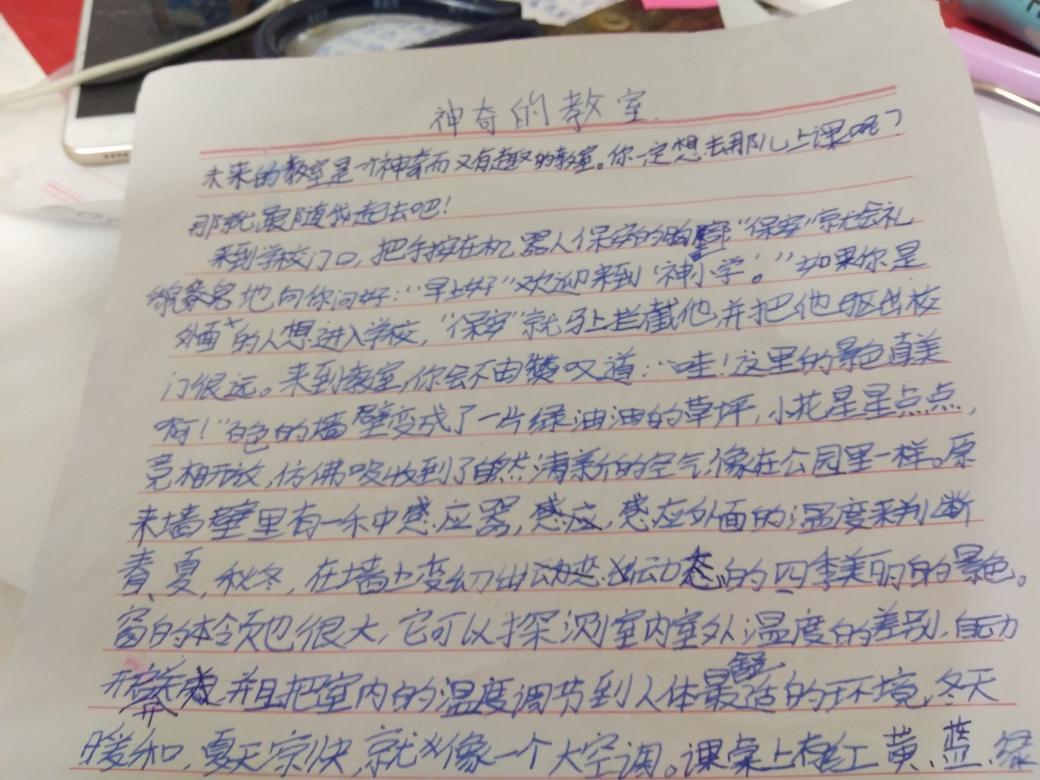 神奇的教室
未来的教室是一个神奇而又有趣的教室。你一定想去那儿上课呢?
那就跟随我起去吧!
来到学校门口,把手按在机器人保安的胸 “保安”就会礼
貌 地向你问好:“早上好”欢迎来到‘神小学’。”如果你是
外面的人想进入学校,“保安”就马上拦截他,并把他驱出校
门很远。来到教室,你会不由赞叹道:“哇!这里的景色真美
啊!”白色的墙壁变成了一片绿油油的草坪,小花星星点点,
竞相开放,仿佛吸收到了自然清新的空气,像在公园里一样。原
来墙壁里有一 中感应器,感应,感应外面的温度来判断
春、夏,秋冬,在墙上变幻出动态 动态的四季美丽的景色。
窗的本领也很大,它可以探测室内室外温度的差别,自动
开 并且把室内的温度调节到人体最舒适的环境,冬天
暖和,夏天凉快,就 像一个大空调。课桌上有红、黄、蓝、绿